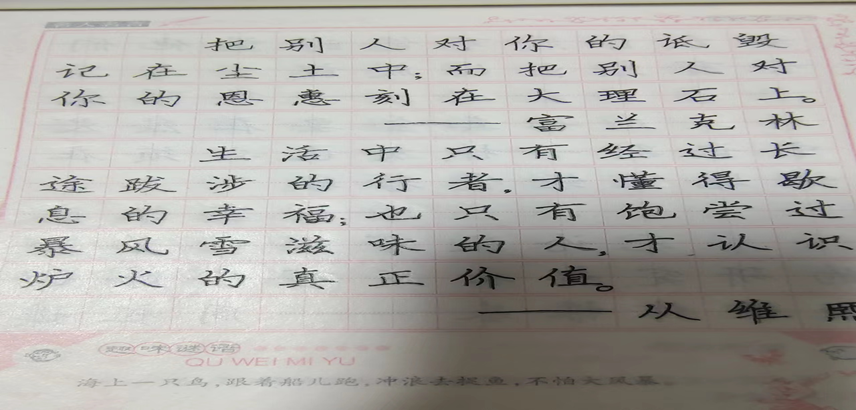 把别人对你的诋毁
记在尘土中；而把别人对
你的恩惠刻在大理石上。
——富兰克林
生活中只有经过长
途跋涉的行者，才懂得歇
息的幸福；也只有饱尝过
暴风雪滋味的人，才认识
炉火的真正价值。
——从维熙
趣味谜语
QU WEI MI YU
海上一只鸟，跟着船儿跑，冲浪去捉鱼，不怕大风暴。